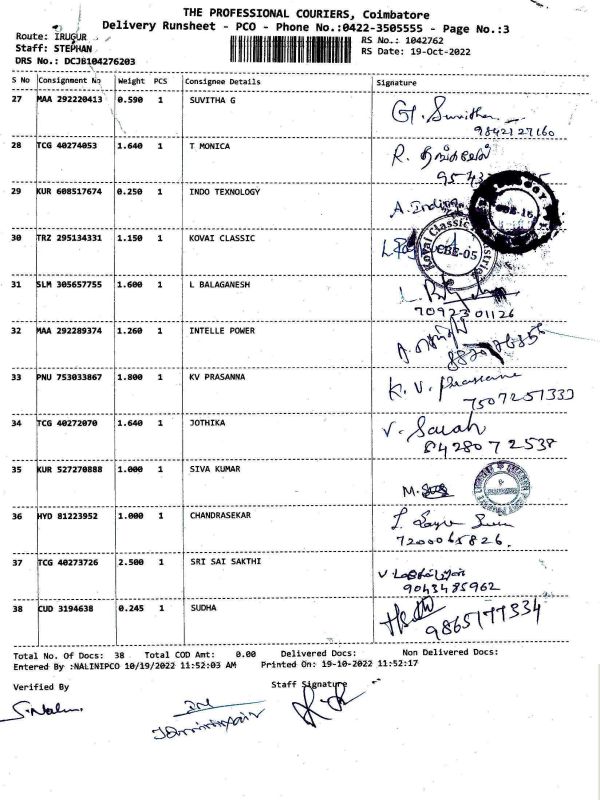 THE PROFESSIONAL COURIERS, Coimbatore
Delivery Runsheet - PCO - Phone No.:0422-3505555 - Page No.:3
Route: IRUGUR
RS No.: 1042762
Staff: STEPHAN
RS Date: 19-Oct-2022
DRS No.: DCJB104276203
S No Consignment No Weight PCS Consignee Details Signature
27 MAA 292220413 0.590 1 SUVITHA G G. Suvitha
9842127160
28 TCG 40274053 1.640 1 T MONICA R.
29 KUR 608517674 0.250 1 INDO TEXNOLOGY A. CBE-16
30 TRZ 295134331 1.150 1 KOVAI CLASSIC Kovai Classic CBE-05
31 SLM 305657755 1.600 1 L BALAGANESH L.
7092301126
32 MAA 292289374 1.260 1 INTELLE POWER A.
33 PNU 753033867 1.800 1 KV PRASANNA K. V. Prasanna
7507251333
34 TCG 40272070 1.640 1 JOTHIKA V. Sarah
8428072538
35 KUR 527270888 1.000 1 SIVA KUMAR M.
36 HYD 81223952 1.000 1 CHANDRASEKAR
7200065826.
37 TCG 40273726 2.500 1 SRI SAI SAKTHI V
9043485962
38 CUD 3194638 0.245 1 SUDHA
9865177334
Total No. Of Docs: 38 Total COD Amt: 0.00 Delivered Docs: Non Delivered Docs:
Entered By :NALINIPCO 10/19/2022 11:52:03 AM Printed On: 19-10-2022 11:52:17
Verified By Staff Signature